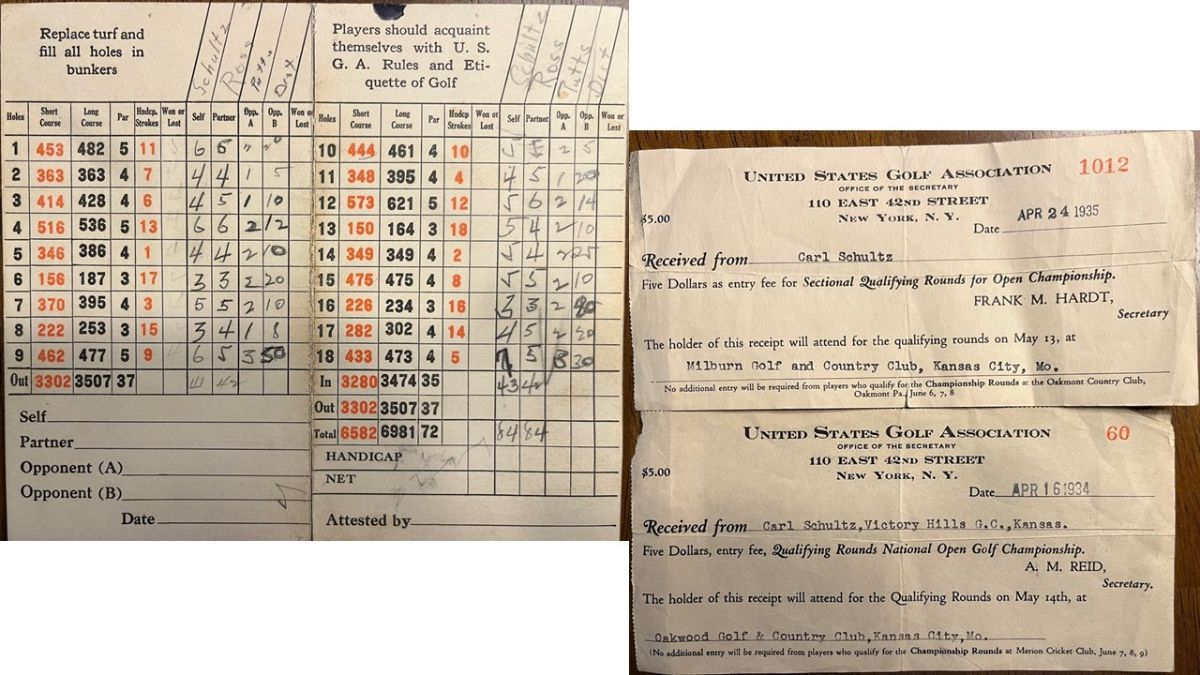 Replace turf and
fill all holes in
bunkers
Schultz Ross Putts Dist
Holes Short Course Long Course Par Hndcp. Strokes Won or Lost Self Partner Opp. A Opp. B Won or Lost
1 453 482 5 11 6 6
2 363 363 4 7 4 4 1 5
3 414 428 4 6 4 5 1 10
4 516 536 5 13 6 6 2 12
5 346 386 4 1 4 4 2 10
6 156 187 3 17 3 3 2 20
7 370 395 4 3 5 5 2 10
8 222 253 3 15 3 4 1 8
9 462 477 5 9 6 5 3 50
Out 3302 3507 37 41 42
Self
Partner
Opponent (A)
Opponent (B)
Date
Players should acquaint
themselves with U. S.
G. A. Rules and Eti-
quette of Golf
Schultz Ross Putts Dist
Holes Short Course Long Course Par Hndcp Strokes Won or Lost Self Partner Opp. A Opp. B Won or Lost
10 444 461 4 10 5 5 2 5
11 348 395 4 4 4 5 1 20
12 573 621 5 12 5 6 2 14
13 150 164 3 18 5 4 2 10
14 349 349 4 2 5 4 2 25
15 475 475 4 8 5 5 2 10
16 226 234 3 16 3 3 2
17 282 302 4 14 4 5 2 20
18 433 473 4 5 7 5 3 30
In 3280 3474 35 43 42
Out 3302 3507 37
Total 6582 6981 72 84 84
HANDICAP
NET
Attested by
UNITED STATES GOLF ASSOCIATION 1012
OFFICE OF THE SECRETARY
110 EAST 42ND STREET
$5.00 NEW YORK, N. Y.
Date APR 24 1935
Received from Carl Schultz
Five Dollars as entry fee for Sectional Qualifying Rounds for Open Championship.
FRANK M. HARDT,
Secretary
The holder of this receipt will attend for the qualifying rounds on May 13, at
Milburn Golf and Country Club, Kansas City, Mo.
No additional entry will be required from players who qualify for the Championship Rounds at the Oakmont Country Club,
Oakmont Pa., June 6, 7, 8
UNITED STATES GOLF ASSOCIATION 60
OFFICE OF THE SECRETARY
110 EAST 42ND STREET
$5.00 NEW YORK, N. Y.
Date APR 16 1934
Received from Carl Schultz,Victory Hills G.C.,Kansas.
Five Dollars, entry fee, Qualifying Rounds National Open Golf Championship.
A. M. REID,
Secretary.
The holder of this receipt will attend for the Qualifying Rounds on May 14th, at
Oakwood Golf & Country Club,Kansas City,Mo.
(No additional entry will be required from players who qualify for the Championship Rounds at Merion Cricket Club, June 7, 8, 9)